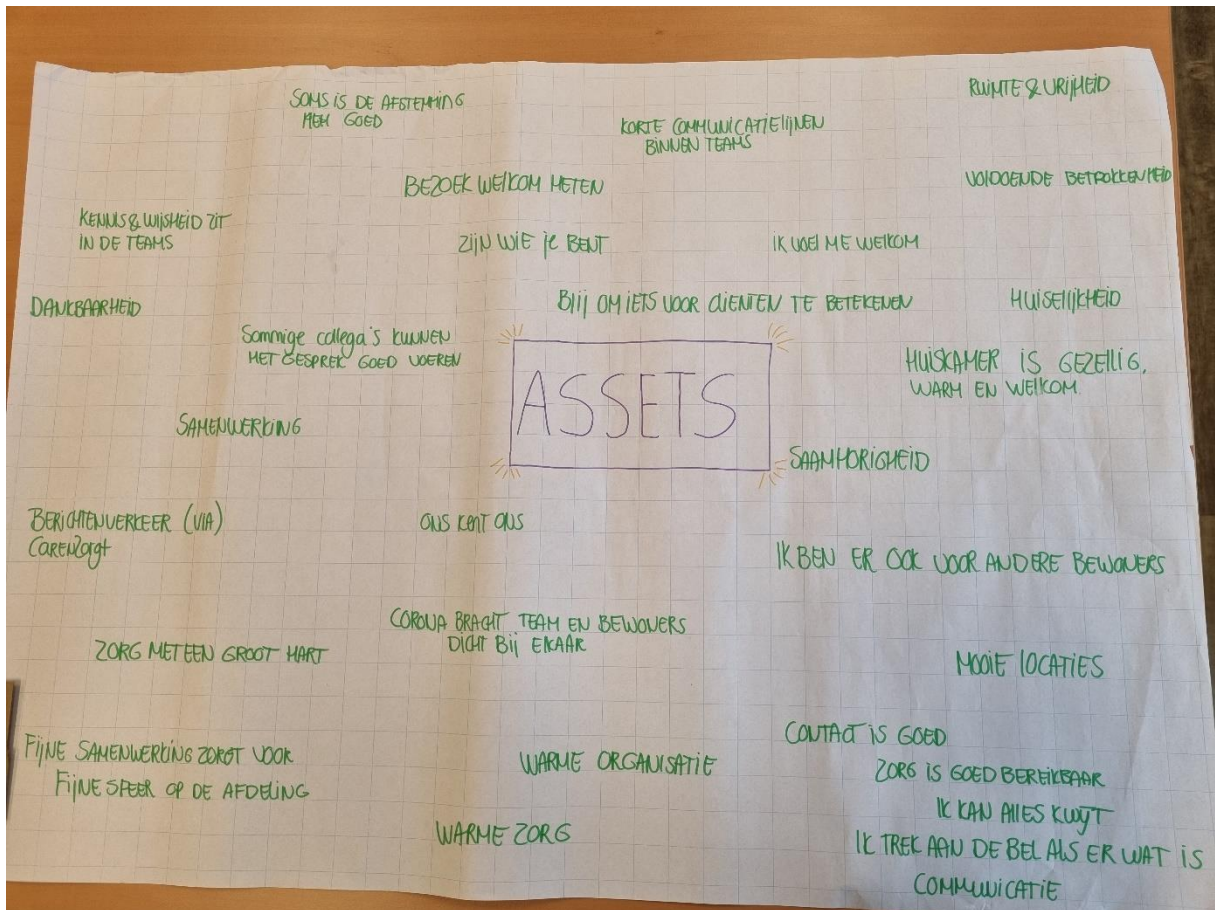 SOMS IS DE AFSTEMMING
HEEL GOED
KORTE COMMUNICATIELIJNEN
BINNEN TEAMS
RUIMTE & VRIJHEID
BEZOEK WELKOM HETEN
VOLDOENDE BETROKKENHEID
KENNIS & WIJSHEID ZIT
IN DE TEAMS
ZIJN WIE JE BENT
IK VOEL ME WELKOM
DANKBAARHEID
BLIJ OM IETS VOOR CLIENTEN TE BETEKENEN
HUISELIJKHEID
Sommige collega's KUNNEN
HET GESPREK GOED VOEREN
HUISKAMER IS GEZELLIG,
WARM EN WELKOM.
ASSETS
SAMENWERKING
SAAMHORIGHEID
BERICHTENVERKEER (VIA)
CARENZorgt
ONS KENT ONS
IK BEN ER OOK VOOR ANDERE BEWONERS
CORONA BRACHT TEAM EN BEWONERS
DICHT BIJ ELKAAR
ZORG MET EEN GROOT HART
MOOIE LOCATIES
FIJNE SAMENWERKING ZORGT VOOR
FIJNE SFEER OP DE AFDELING
WARME ORGANISATIE
CONTACT IS GOED
ZORG IS GOED BEREIKBAAR
IK KAN ALLES KWIJT
IK TREK AAN DE BEL ALS ER WAT IS
COMMUNICATIE
WARME ZORG